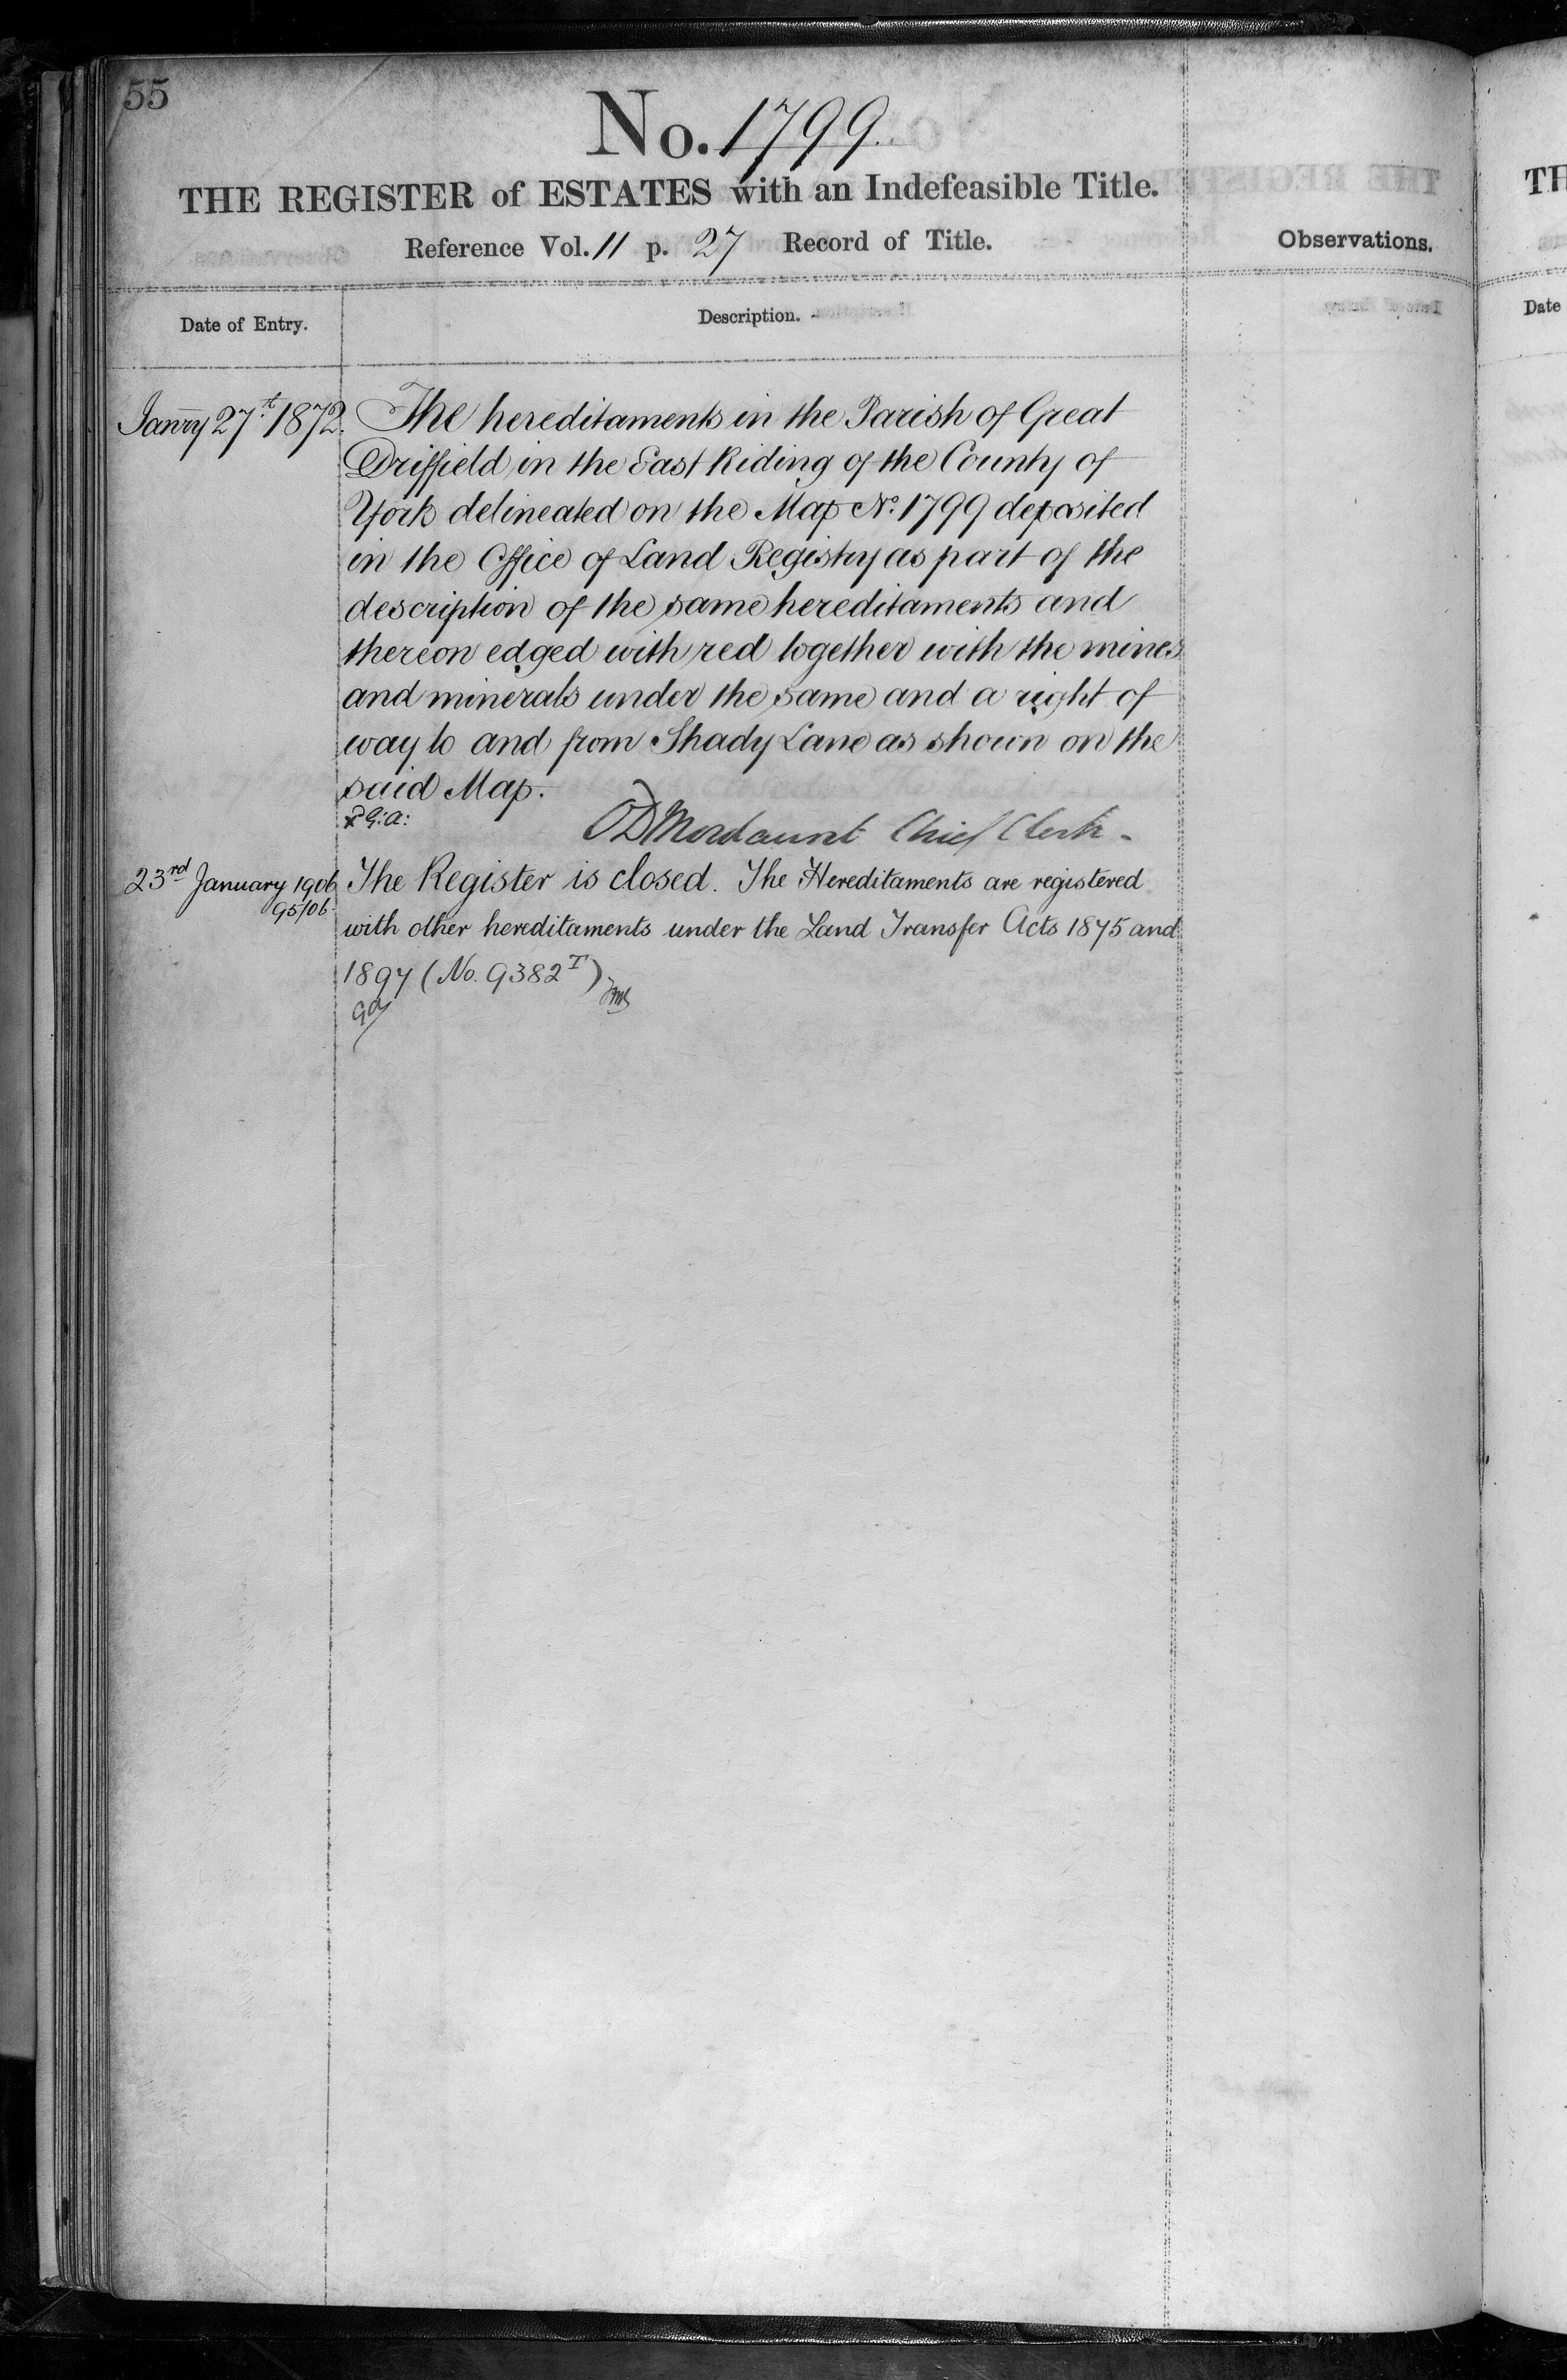 55
No. 1799.
THE REGISTER of ESTATES with an Indefeasible Title.
Reference Vol. 11 p. 27 Record of Title.
Observations.
Date of Entry.
Description.
Janry 27th 1872.
The hereditaments in the Parish of Great
Driffield in the East Riding of the County of
York delineated on the Map No. 1799 deposited
in the Office of Land Registry as part of the
description of the same hereditaments and
thereon edged with red together with the mines
and minerals under the same and a right of
way to and from Shady Lane as shown on the
said Map.
G:a:
Mordaunt Chief Clerk -
23rd January 1906
95/06
The Register is closed. The Hereditaments are registered
with other hereditaments under the Land Transfer Acts 1875 and
1897 (No. 9382 T)
TH
Date